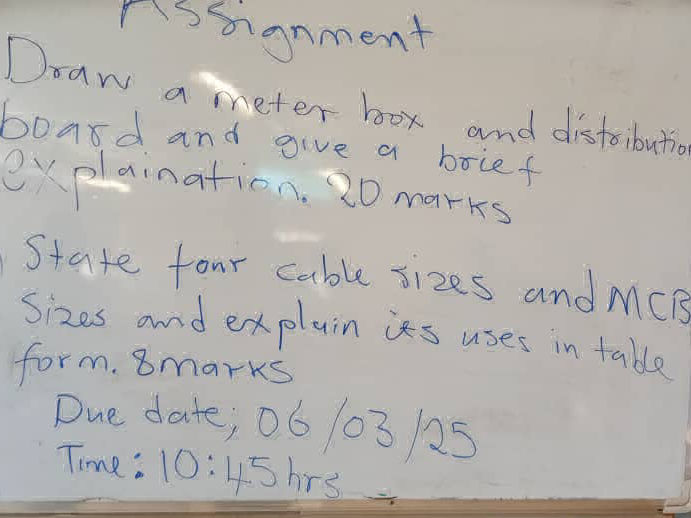 Assignment
Draw a meter box and distribution
board and give a brief
explaination. 20 marks
State four cable sizes and MCB
Sizes and explain its uses in table
form. 8marks
Due date; 06/03/25
Time: 10:45hrs